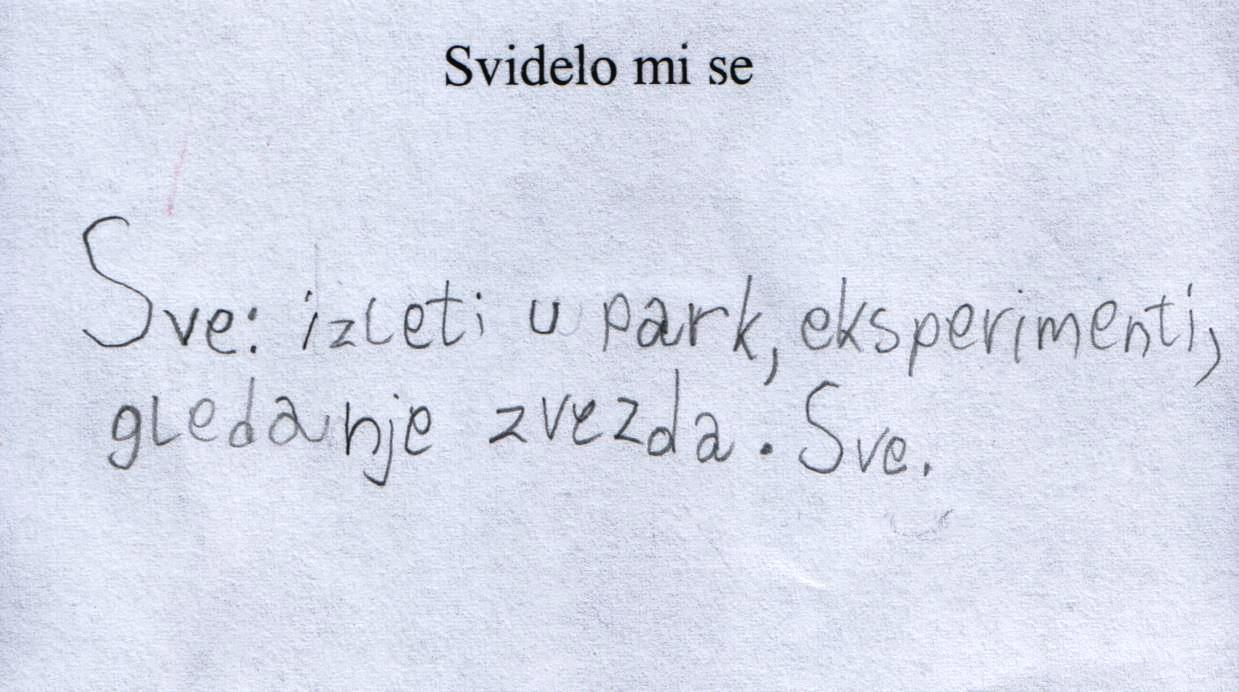 Svidelo mi se
Sve: izleti u park, eksperimenti,
gledanje zvezda. Sve.